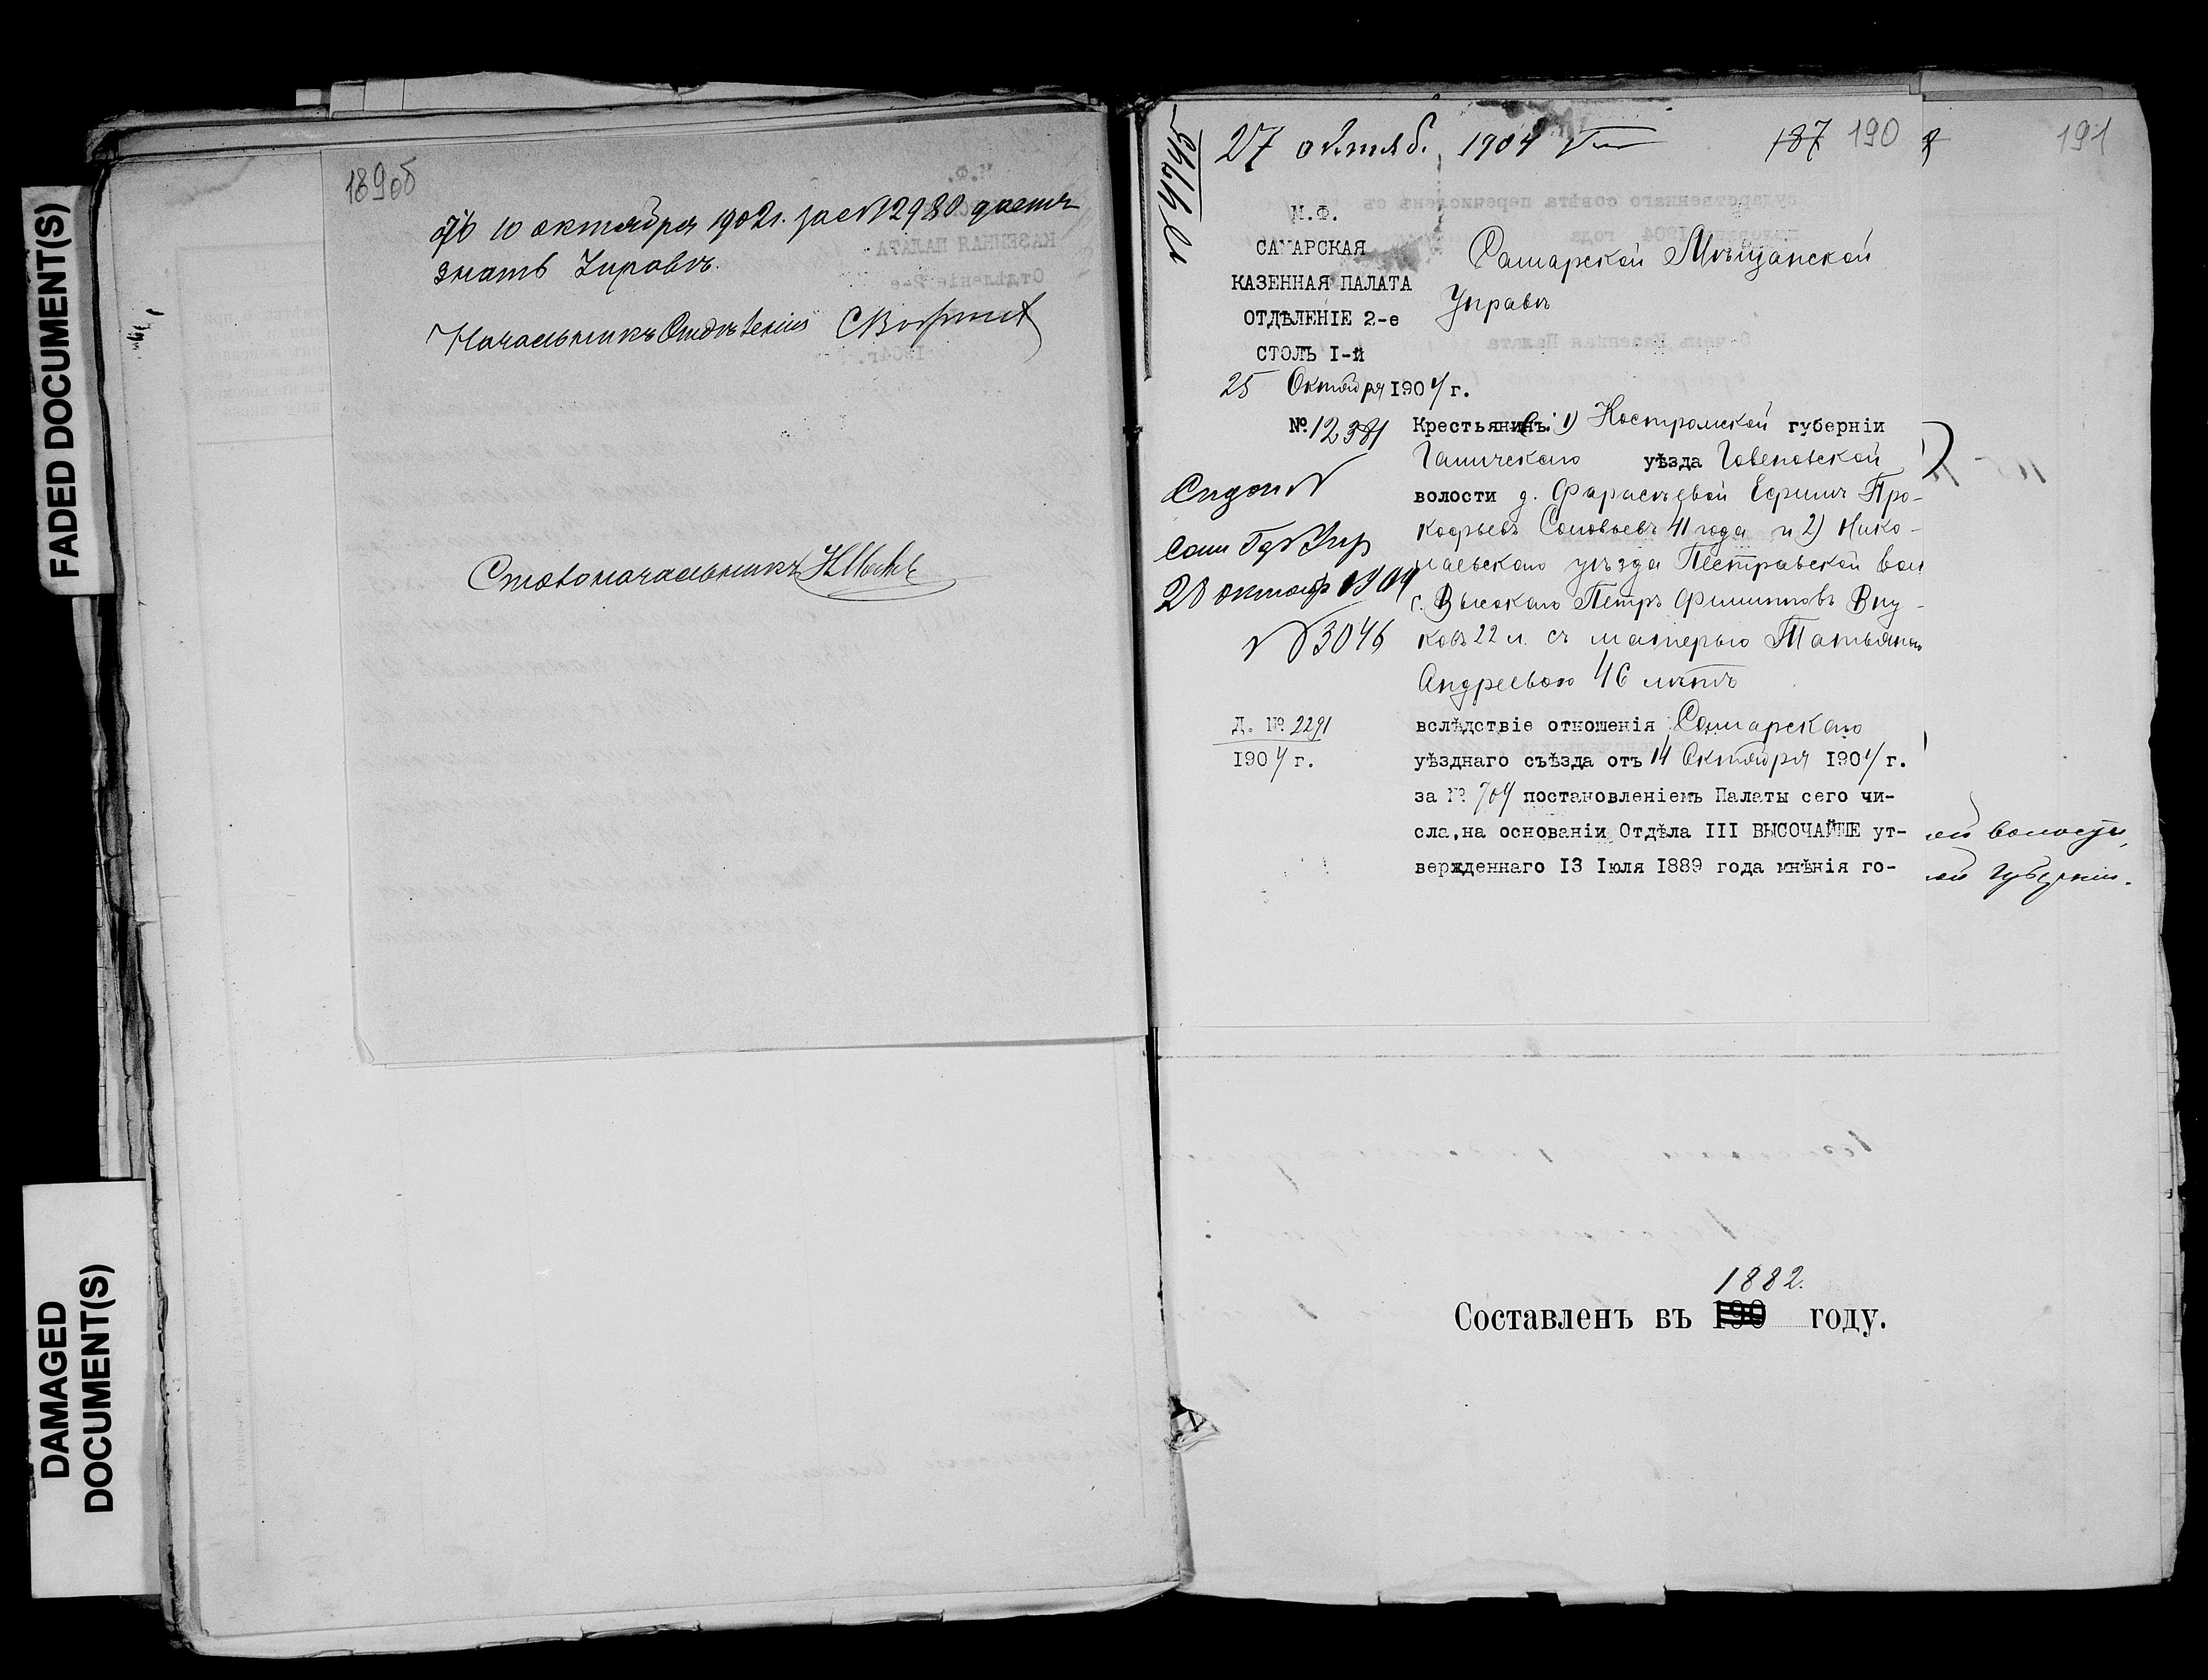 FADED DOCUMENT(S)
DAMAGED
DOCUMENT(S)
189об
10 октября 1902 г. за №12980 даетъ
знать Управѣ.
Начальникъ Отдѣленія
Столоначальникъ
№ 4745
27 октяб. 1904
187 190
191
М.Ф.
САМАРСКАЯ
КАЗЕННАЯ ПАЛАТА
ОТДѢЛЕНІЕ 2-е
СТОЛЪ I-й
25 Октября 1904 г.
№ 12381
Самарской Мѣщанской
Управѣ
Крестьяне: 1) Костромской губерніи
Галичскаго уѣзда
волости д. Ефимъ Про-
кофьевъ Соловьевъ 41 года и 2) Нико-
лаевскаго уѣзда Пестравской вол
с. Высокаго Петръ Филипповъ Вну-
ковъ 22 л. съ матерью Татьяной
Андреевою 46 лѣтъ
28 октяб 1904
№ 3046
Д. № 2291
1904 г.
вслѣдствіе отношенія Самарскаго
уѣзднаго съѣзда отъ 14 Октября 1904 г.
за № 704 постановленіемъ Палаты сего чи-
сла, на основаніи Отдѣла III ВЫСОЧАЙШЕ ут-
вержденнаго 13 Іюля 1889 года мнѣнія го-
ой волости,
ой губерніи.
1882.
Составленъ въ 190 году.